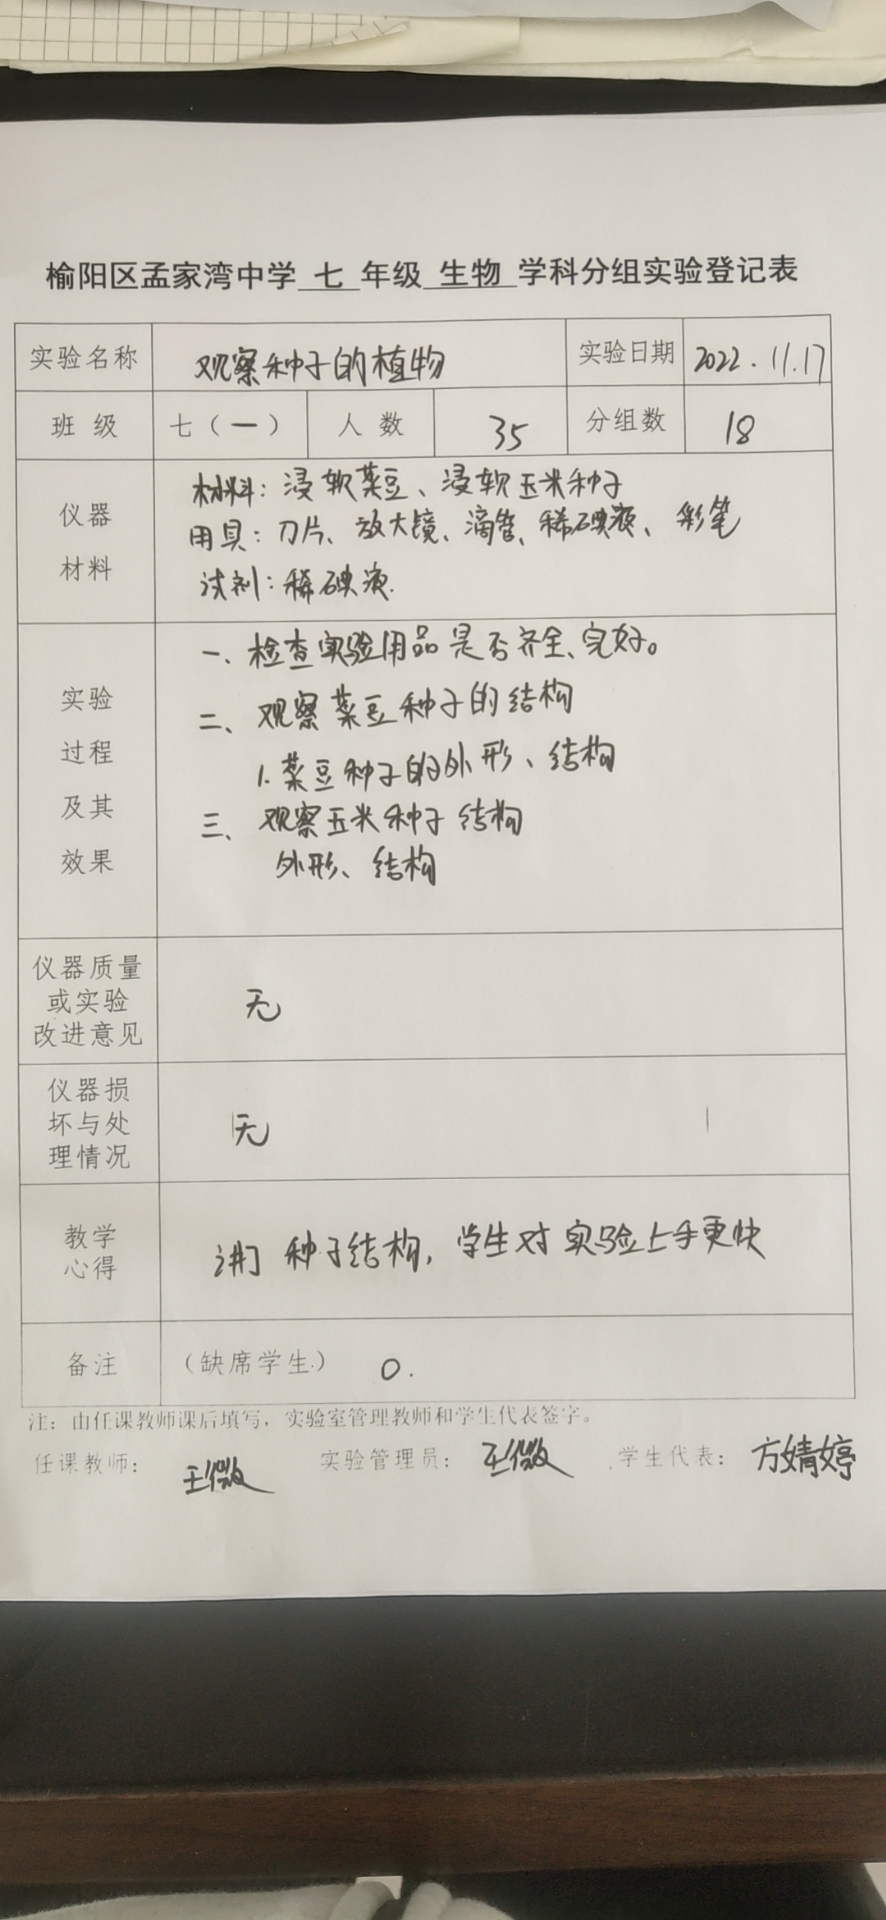 榆阳区孟家湾中学 七 年级 生物 学科分组实验登记表
实验名称 观察种子的植物 实验日期 2022.11.17
班 级 七（一） 人 数 35 分组数 18
仪器
材料
材料：浸软菜豆、浸软玉米种子
用具：刀片、放大镜、滴管、稀碘液、彩笔
试剂：稀碘液.
实验
过程
及其
效果
一、检查实验用品是否齐全、完好。
二、观察菜豆种子的结构
1.菜豆种子的外形、结构
三、观察玉米种子结构
外形、结构
仪器质量
或实验
改进意见
无
仪器损
坏与处
理情况
无
教学
心得
讲了种子结构，学生对实验上手更快
备注 （缺席学生.） 0.
注：由任课教师课后填写，实验室管理教师和学生代表签字。
任课教师： 王微 实验管理员： 王微 学生代表： 方婧婷